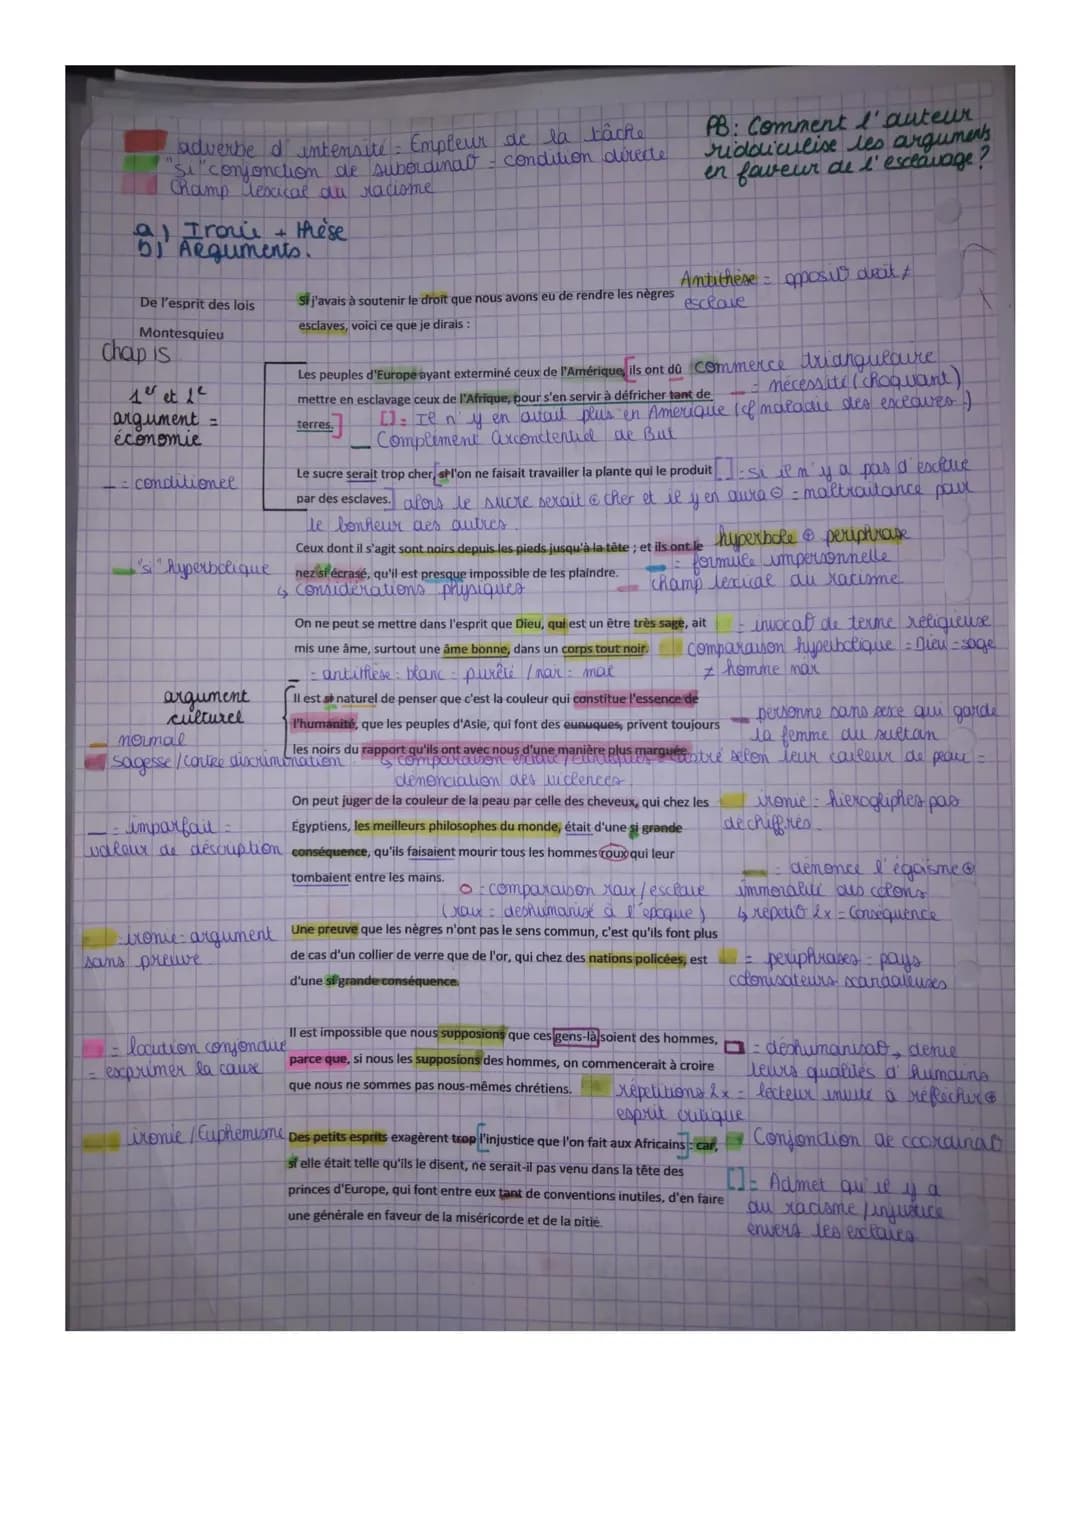 PB: Comment l'auteur
riddiculise les arguments
en faveur de l'esclavage ?
adverbe d'intensité = Empleur de la tâche
"si" conjonction de subordinat° = condition directe
Champ lexical du racisme
a) Ironie + thèse
b) Arguments.
Antithèse = opposit° droit ≠
esclave
De l'esprit des lois
Montesquieu
chap 15
Si j'avais à soutenir le droit que nous avons eu de rendre les nègres
esclaves, voici ce que je dirais :
1er et 2e
argument =
économie
Les peuples d'Europe ayant exterminé ceux de l'Amérique, ils ont dû
commerce triangulaire
mettre en esclavage ceux de l'Afrique, pour s'en servir à défricher tant de
= nécessité (choquant)
terres.
[] = Il n'y en avait plus en Amérique (cf maladie des esclaves)
Complément circonstentiel de But
= conditionel
Le sucre serait trop cher, si l'on ne faisait travailler la plante qui le produit
[] = si il n'y a pas d'esclave
par des esclaves.
alors le sucre serait ⊕ cher et il y en aura ⊖ = maltraitance pour
le bonheur des autres.
hyperbole ⊕ periphrase
Ceux dont il s'agit sont noirs depuis les pieds jusqu'à la tête ; et ils ont le
= formule impersonnelle
"si" hyperbolique
nez si écrasé, qu'il est presque impossible de les plaindre.
champ lexical du racisme
↳ considérations physiques
On ne peut se mettre dans l'esprit que Dieu, qui est un être très sage, ait
= vocab de terme religieuse
mis une âme, surtout une âme bonne, dans un corps tout noir.
comparaison hyperbolique = Dieu = sage
≠ homme noir
= antithèse : blanc = pureté / noir = mal
argument
culturel
Il est si naturel de penser que c'est la couleur qui constitue l'essence de
l'humanité, que les peuples d'Asie, qui font des eunuques, privent toujours
= personne sans sexe qui garde
la femme du sultan
normal
les noirs du rapport qu'ils ont avec nous d'une manière plus marquée.
sagesse / contre discrimination
↳ comparaison esclave / eunuques = castré selon leur couleur de peau =
dénonciation des violences
On peut juger de la couleur de la peau par celle des cheveux, qui chez les
ironie = hieroglyphes pas
déchiffrés.
= imparfait =
valeur de description
Égyptiens, les meilleurs philosophes du monde, était d'une si grande
conséquence, qu'ils faisaient mourir tous les hommes roux qui leur
tombaient entre les mains.
= dénonce l'égoïsme ⊕
immoralité des colons
↳ répétit° 2x = Conséquence
O = comparaison roux / esclave
(roux = deshumanisé à l'époque)
= ironie = argument
sans preuve
Une preuve que les nègres n'ont pas le sens commun, c'est qu'ils font plus
de cas d'un collier de verre que de l'or, qui chez des nations policées, est
d'une si grande conséquence.
= periphrases = pays
colonisateurs scandaleuses
Il est impossible que nous supposions que ces gens-là soient des hommes,
= déshumanisat°, dénie
leurs qualités d'humains
= locution conjonctive
= exprimer la cause
parce que, si nous les supposions des hommes, on commencerait à croire
que nous ne sommes pas nous-mêmes chrétiens.
répétitions 2x = lecteur invité à réfléchir ⊕
esprit critique
ironie / Euphémisme
Des petits esprits exagèrent trop l'injustice que l'on fait aux Africains : car,
Conjonction de coordinat°
si elle était telle qu'ils le disent, ne serait-il pas venu dans la tête des
princes d'Europe, qui font entre eux tant de conventions inutiles, d'en faire
une générale en faveur de la miséricorde et de la pitié
[] = Admet qu'il y a
du racisme / injustice
envers les esclaves